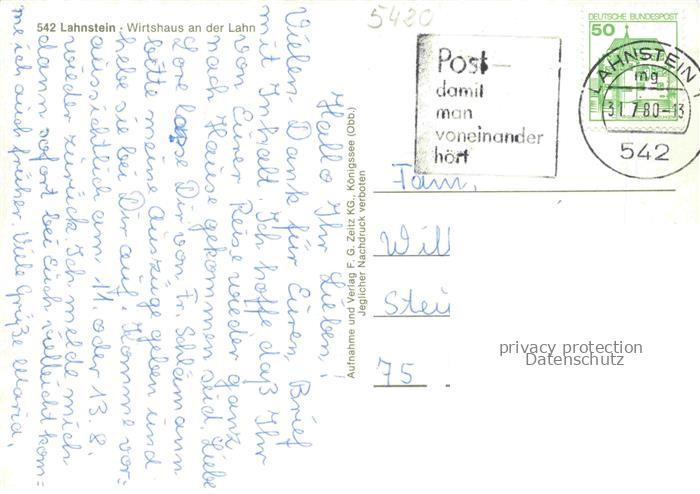 542 Lahnstein · Wirtshaus an der Lahn
5420
Post-
damit
man
voneinander
hört
DEUTSCHE BUNDESPOST
50
LAHNSTEIN 1
mg
31.7.80-13
542
Hallo Ihr Lieben!
Vielen Dank für Euren Brief
mit Inhalt. Ich hoffe daß Ihr
von Eurer Reise wieder ganz
nach Hause gekommen seid. Liebe
Lore lasse Dir von Fr. Schlämann
bitte meine Auszüge geben und
hebe sie bei Dir auf. Komme vor=
aussichtlich am 11. oder 13.8.
wieder zurück. Ich melde mich
dann sofort bei Euch vielleicht kom=
me ich auch früher. Viele Grüße Maria.
Aufnahme und Verlag F. G. Zeitz KG., Königssee (Obb.)
Jeglicher Nachdruck verboten
Fam.
Will
Stei
75
privacy protection
Datenschutz